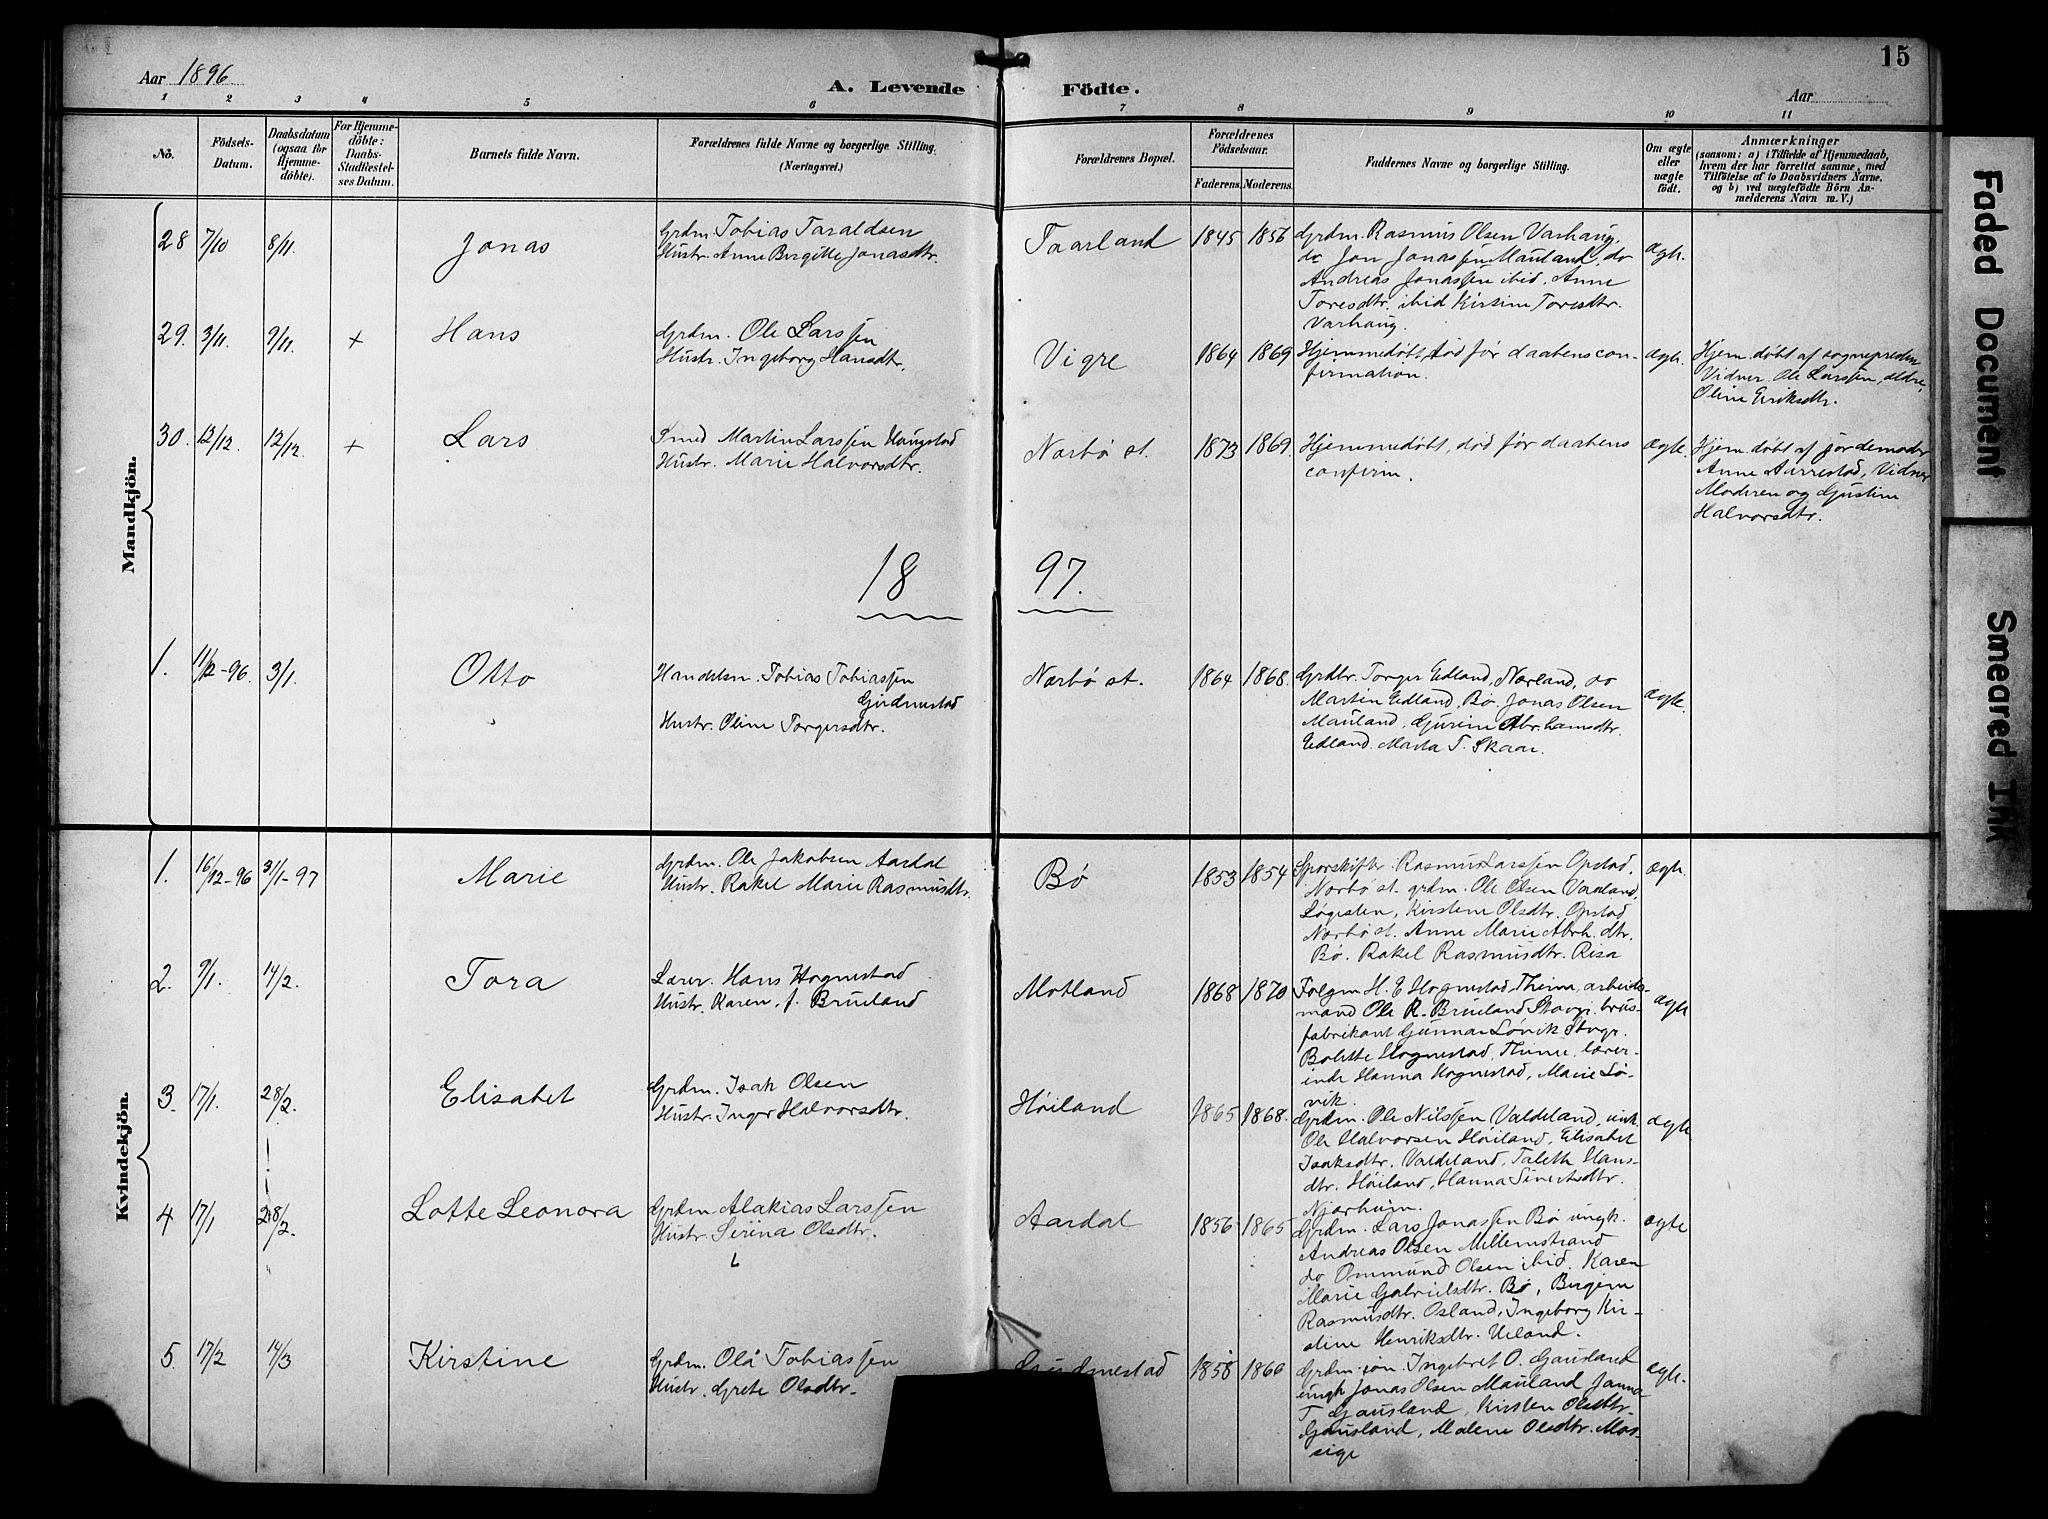 Aar 1896
A. Levende Födte.
Aar
15
1 2 3 4 5 6 7 8 9 10 11
No.
Födsels-
Datum.
Daabsdatum
(ogsaa for
Hjemme-
döbte).
For Hjemme-
döbte:
Daabs-
Stadfæstel-
ses Datum.
Barnets fulde Navn.
Forældrenes fulde Navne og borgerlige Stilling.
(Næringsvei.)
Forældrenes Bopæl.
Forældrenes
Födselsaar.
Faderens. Moderens.
Faddernes Navne og borgerlige Stilling.
Om ægte
eller
uægte
födt.
Anmærkninger
(saasom: a) i Tilfælde af Hjemmedaab,
hvem der har forrettet samme, med
Tilföielse af to Daabsvidners Navne.
og b) ved uægtefödte Börn An-
melderens Navn m. V.)
Mandkjön.
28 7/10 8/11. Jonas
Grdm. Tobias Taraldsen
Hustr. Anne Birgitte Jonasdtr.
Taarland 1845 1856
Grdm. Rasmus Olsen Varhaug,
do Jon Jonassen Mauland, do
Andreas Jonassen ibid, Anne
Toresdtr. ibid Kirstine Toresdtr.
Varhaug.
ægte.
29. 3/11. 9/11. + Hans
Grdm. Ole Larssen
Hustr. Ingeborg Hansdtr.
Vigre 1864 1869
Hjemmedøbt, død før daabens con-
firmation.
ægte.
Hjem. døbt af sognepresten
Vidner. Ole Larssen, ældre,
Oline Eriksdtr.
30. 12/12. 12/12 + Lars
Smed Martin Larssen Haugstad
Hustr. Marie Halvorsdtr.
Nærbø st. 1873 1869.
Hjemmedøbt, død før daabens
confirm.
ægte.
Hjem. døbt af jordemoder
Anne Aurestad, Vidner
Moderen og Gustine
Halvorsdtr.
18 97.
1. 11/12-96. 3/1. Otto
Handelsm. Tobias Tobiassen
Gudmestad
Hustr. Oline Torgersdtr.
Nærbø st. 1864 1868.
Grdbr. Torger Edland, Nærland, do
Martin Edland, Bø. Jonas Olsen
Mauland, Gurine Abrahamsdtr.
Edland. Marta T. Skaar.
ægte.
Kvindekjön.
1. 16/12-96 31/1-97 Marie
Grdm. Ole Jakobsen Aardal
Hustr. Rakel Marie Rasmusdtr.
Bø 1853 1854
Sporskifter Rasmus Larssen Opstad,
Nærbø st. grdm. Ole Olsen Varland,
Kirstene Olsdtr. Opstad
Nærbø st. Anne Marie Abrh. dtr.
Bø. Rakel Rasmusdtr. Risa
ægte.
2. 9/1. 14/2. Tora
Lærer. Hans Hognestad
Hustr. Karen, f. Brueland
Motland 1868 1870
Folgm H. E Hognestad, Thime, arbeids-
mand Ole R. Brueland Stavgr. brus-
fabrikant Gunnar Løvik Stvgr.
Bolette Hognestad, Thime, lærer-
inde Hanna Hognestad, Marie Lø-
vik.
ægte
3. 17/1. 28/2. Elisabet
Grdm. Isak Olsen
Hustr. Inger Halvorsdtr.
Høiland 1865 1868.
Grdm. Ole Nilssen Valdeland, unk.
Ole Halvorsen Høiland, Elisabet
Isaksdtr. Valdeland, Taleth Hans-
dtr. Høiland, Hanna Sivertsdtr.
Njærheim.
ægte
4 17/1 28/2. Lotte Leonora
Grdm. Alakias Larssen
Hustr. Serina Olsdtr.
Aardal 1856 1865
Grdm. Lars Jonassen Bø ungk.
Andreas Olsen Mellemstrand
do Ommund Olsen ibid. Karen
Marie Gabrielsdtr. Bø, Bergine
Rasmusdtr. Osland, Ingeborg Kir-
stine Henriksdtr. Ueland.
ægte
5. 17/2 14/3 Kirstine
Grdm. Ola Tobiassen
Hustr. Grete Olsdtr.
Gudmestad 1858 1866
Grdm. søn. Ingebret O. Gausland
ungk Jonas Olsen Mauland, Janna
T. Gausland, Kirsten Olsdtr.
Gausland, Malene Olsdtr. Mas-
sige
ægte.
Faded Document
Smeared Ink